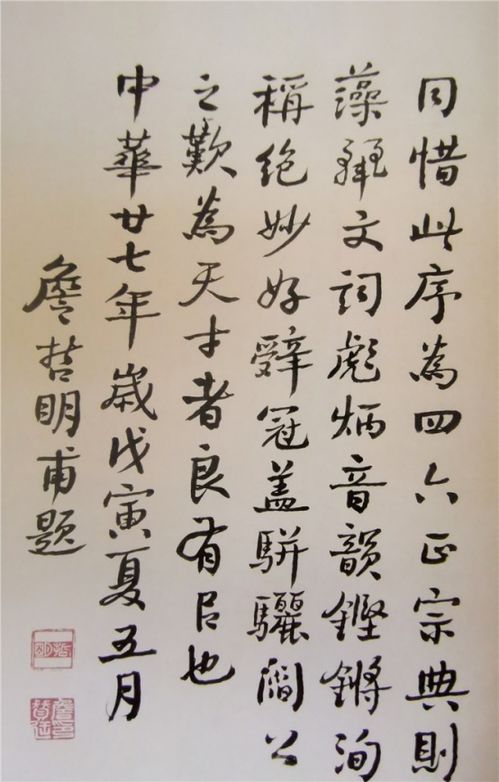 同惜此序為四六正宗典則
藻文詞彪炳音韻鏗鏘洵
稱絕妙好辤冠盖駢驪閻公
之歎為天才者良有㠯也
中華廿七年歲戊寅夏五月
詹哲明甫題
哲明